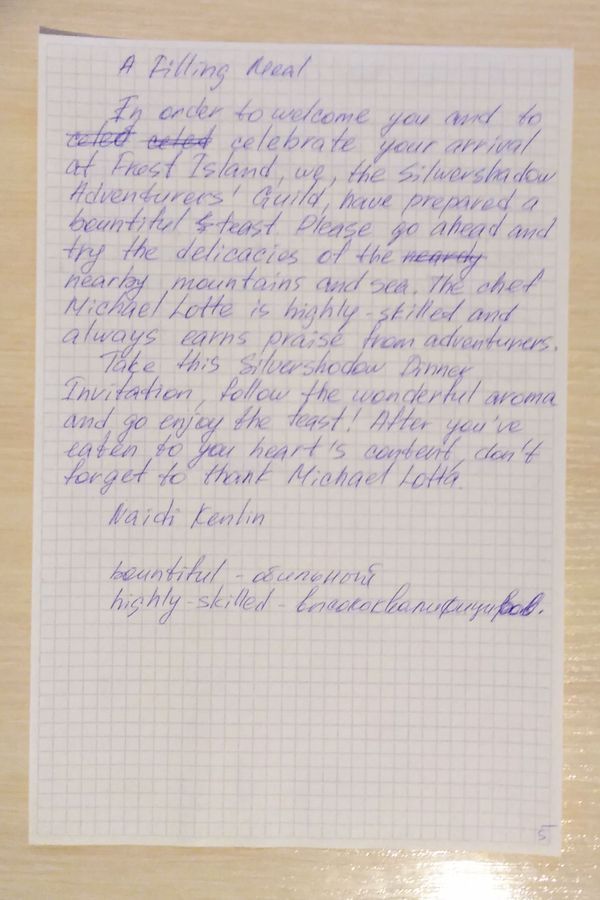 A Filling Meal
In order to welcome you and to
celed celed celebrate your arrival
at Frost Island, we, the Silwershadow
Adventurers' Guild, have prepared a
bountiful feast. Please go ahead and
try the delicacies of the neardy
nearby mountains and sea. The chef
Michael Lotte is highly-skilled and
always earns praise from adventurers.
Take this Silvershodow Dinner
Invitation, follow the wonderful aroma
and go enjoy the feast! After you've
eaten to you heart's content, don't
forget to thank Michael Lotta.
Naidi Kenlin
bountiful - обильный
highly-skilled - высококвалифициров.
5